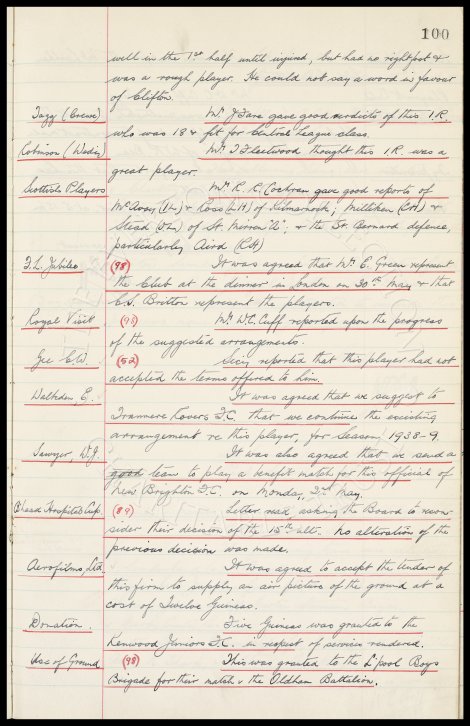 100
well in the 1st half until injured, but had no right foot &
was a rough player. He could not say a word in favour
of Clifton.
Tagg (Crewe) Mr. J. Fare gave good verdicts of this I.R.
who was 18 & fit for Central League class.
Robinson (Wadis) Mr. T. Fleetwood thought this I.R. was a
great player.
Scottish Players Mr. R. R. Cochran gave good reports of
McAvoy (IL) & Ross (LH) of Kilmarnock, Milliken (CH) &
Stead (OL) of St. Mirren 'A', & the St. Bernard defence,
particularly Aird (RH)
F.L. Jubilee (98) It was agreed that Mr. E. Green represent
the Club at the dinner in London on 30th May & that
C.S. Britton represent the players.
Royal Visit (98) Mr. W.C. Cuff reported upon the progress
of the suggested arrangements.
Gee C.W. (52) Secy reported that this player had not
accepted the terms offered to him.
Walteden, E. It was agreed that we suggest to
Tranmere Rovers F.C. that we continue the existing
arrangement re this player, for Season, 1938-9.
Sawyer, W.J. It was also agreed that we send a
good team to play a benefit match for this official of
New Brighton F.C. on Monday, 2nd May.
L'head Hospitals Cup. (89) Letter read asking the Board to recon-
sider their decision of the 15th ult. No alteration of the
previous decision was made.
Aerofilms, Ltd. It was agreed to accept the tender of
this firm to supply an air picture of the ground at a
cost of Twelve Guineas.
Donation. Five Guineas was granted to the
Kenwood Juniors F.C. in respect of services rendered.
Use of Ground (98) This was granted to the L'pool Boys
Brigade for their match v the Oldham Battalion.